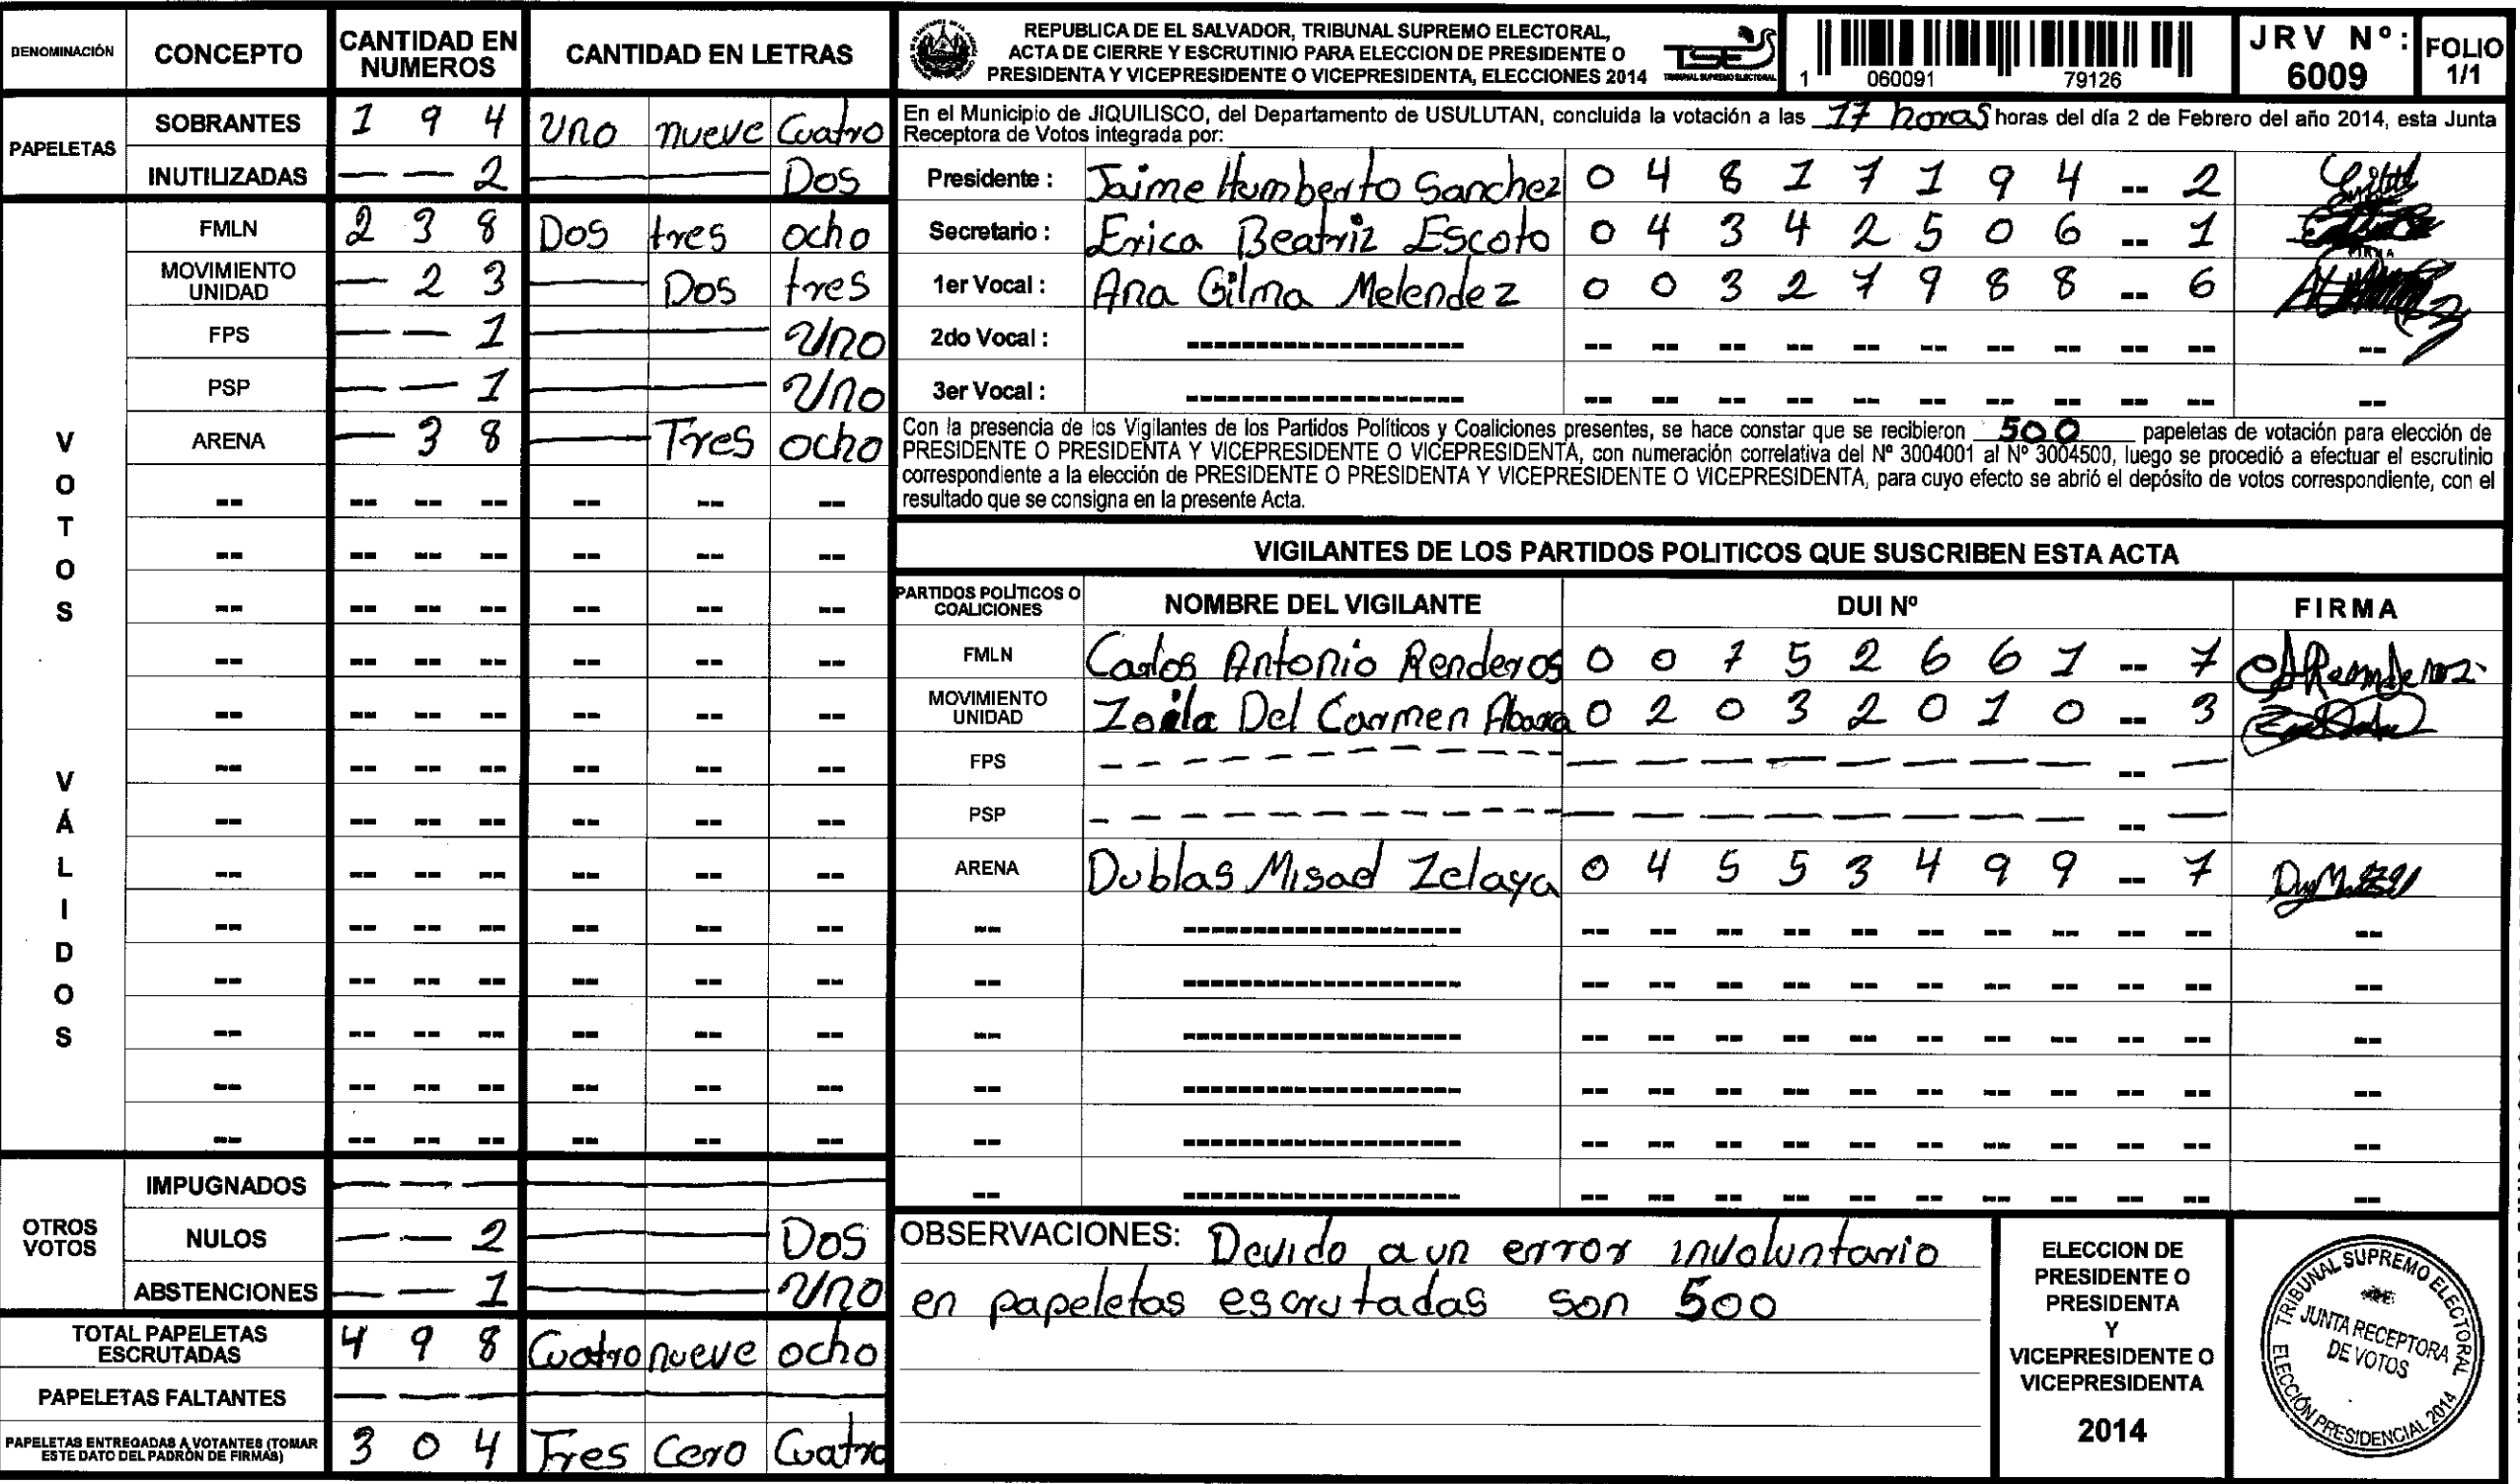 DENOMINACIÓN CONCEPTO CANTIDAD EN NUMEROS CANTIDAD EN LETRAS
PAPELETAS
SOBRANTES 1 9 4 uno nueve Cuatro
INUTILIZADAS — — 2 Dos
VOTOS VÁLIDOS
FMLN 2 3 8 Dos tres ocho
MOVIMIENTO UNIDAD — 2 3 Dos tres
FPS — — 1 uno
PSP — — 1 uno
ARENA — 3 8 Tres ocho
OTROS VOTOS
IMPUGNADOS — — —
NULOS — — 2 Dos
ABSTENCIONES — — 1 uno
TOTAL PAPELETAS ESCRUTADAS 4 9 8 Cuatro nueve ocho
PAPELETAS FALTANTES — — —
PAPELETAS ENTREGADAS A VOTANTES (TOMAR ESTE DATO DEL PADRÓN DE FIRMAS) 3 0 4 Tres Cero Cuatro
REPUBLICA DE EL SALVADOR, TRIBUNAL SUPREMO ELECTORAL,
ACTA DE CIERRE Y ESCRUTINIO PARA ELECCION DE PRESIDENTE O
PRESIDENTA Y VICEPRESIDENTE O VICEPRESIDENTA, ELECCIONES 2014
TSE
TRIBUNAL SUPREMO ELECTORAL
1 060091 79126
JRV Nº: 6009
FOLIO 1/1
En el Municipio de JIQUILISCO, del Departamento de USULUTAN, concluida la votación a las 17 horas horas del día 2 de Febrero del año 2014, esta Junta
Receptora de Votos integrada por:
Presidente : Jaime Humberto Sanchez 0 4 8 1 7 1 9 4 -- 2
Secretario : Erica Beatriz Escoto 0 4 3 4 2 5 0 6 -- 1
FIRMA
1er Vocal : Ana Gilma Melendez 0 0 3 2 7 9 8 8 -- 6
2do Vocal :
3er Vocal :
Con la presencia de los Vigilantes de los Partidos Políticos y Coaliciones presentes, se hace constar que se recibieron 500 papeletas de votación para elección de
PRESIDENTE O PRESIDENTA Y VICEPRESIDENTE O VICEPRESIDENTA, con numeración correlativa del Nº 3004001 al Nº 3004500, luego se procedió a efectuar el escrutinio
correspondiente a la elección de PRESIDENTE O PRESIDENTA Y VICEPRESIDENTE O VICEPRESIDENTA, para cuyo efecto se abrió el depósito de votos correspondiente, con el
resultado que se consigna en la presente Acta.
VIGILANTES DE LOS PARTIDOS POLITICOS QUE SUSCRIBEN ESTA ACTA
PARTIDOS POLÍTICOS O COALICIONES NOMBRE DEL VIGILANTE DUI Nº FIRMA
FMLN Carlos Antonio Renderos 0 0 7 5 2 6 6 1 -- 7
MOVIMIENTO UNIDAD Zoila Del Carmen 0 2 0 3 2 0 1 0 -- 3
FPS
PSP
ARENA Dublas Misael Zelaya 0 4 5 5 3 4 9 9 -- 7
OBSERVACIONES: Devido a un error involuntario
en papeletas escrutadas son 500
ELECCION DE
PRESIDENTE O
PRESIDENTA
Y
VICEPRESIDENTE O
VICEPRESIDENTA
2014
TRIBUNAL SUPREMO ELECTORAL
JUNTA RECEPTORA
DE VOTOS
ELECCIÓN PRESIDENCIAL 2014